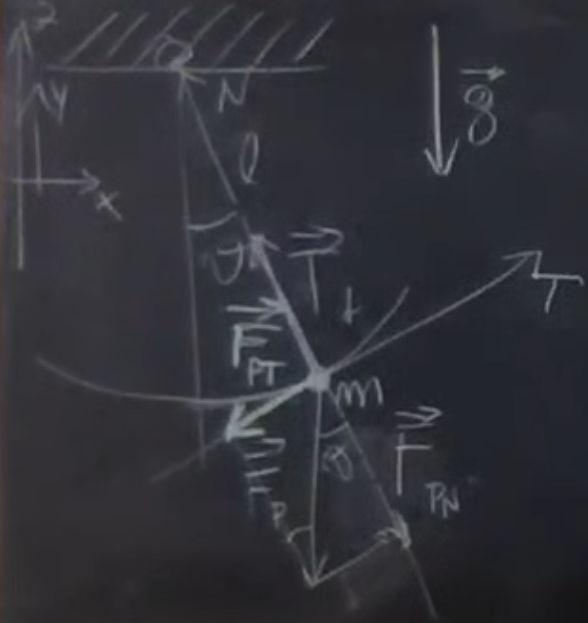 z
y
x
N
l
g
ϑ
T
T
t
F_PT
m
F_P
ϑ
F_PN